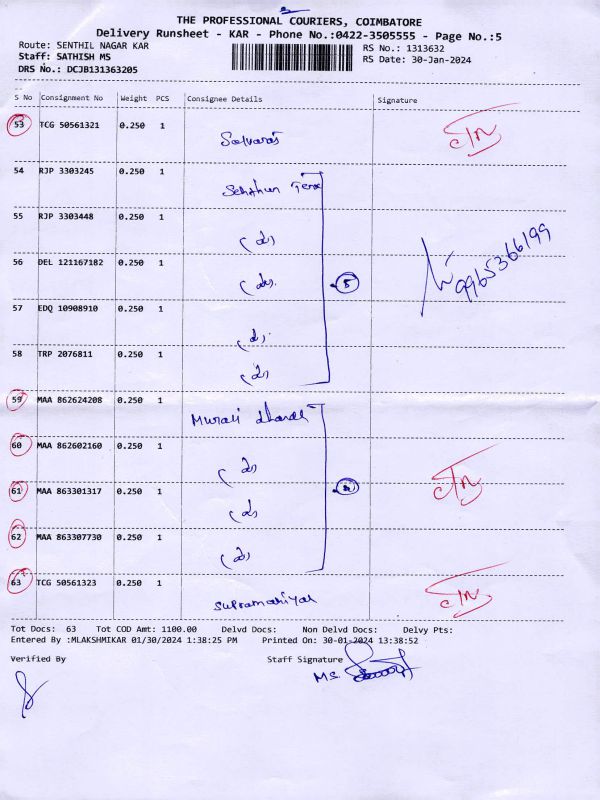 THE PROFESSIONAL COURIERS, COIMBATORE
Delivery Runsheet - KAR - Phone No.:0422-3505555 - Page No.:5
Route: SENTHIL NAGAR KAR
RS No.: 1313632
Staff: SATHISH MS
RS Date: 30-Jan-2024
DRS No.: DCJB131363205
S No Consignment No Weight PCS Consignee Details Signature
53 TCG 50561321 0.250 1
54 RJP 3303245 0.250 1
55 RJP 3303448 0.250 1
56 DEL 121167182 0.250 1
9965366199
57 EDQ 10908910 0.250 1
58 TRP 2076811 0.250 1
59 MAA 862624208 0.250 1
Murali
60 MAA 862602160 0.250 1
61 MAA 863301317 0.250 1
62 MAA 863307730 0.250 1
63 TCG 50561323 0.250 1
Tot Docs: 63 Tot COD Amt: 1100.00 Delvd Docs: Non Delvd Docs: Delvy Pts:
Entered By :MLAKSHMIKAR 01/30/2024 1:38:25 PM Printed On: 30-01-2024 13:38:52
Verified By Staff Signature
M.S.